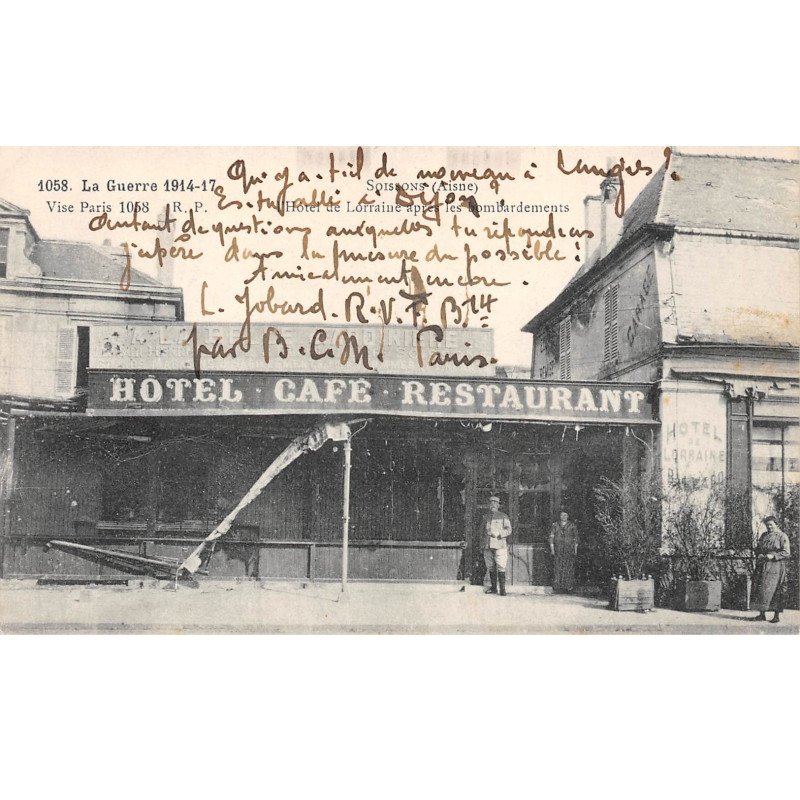 1058. La Guerre 1914-17
SOISSONS (Aisne)
Vise Paris 1058 R. P.
Hôtel de Lorraine après les bombardements
Qu'y a-t-il de nouveau à Langres?
Es-tu allé à Dijon?
Autant de questions auxquelles tu répondras
j'espère dans la mesure du possible!
Amicalement encore.
L. Jobard. R.V.F. B14
par B.C.M. Paris.
HÔTEL · CAFÉ · RESTAURANT
GARAGE
HOTEL
DE
LORRAINE